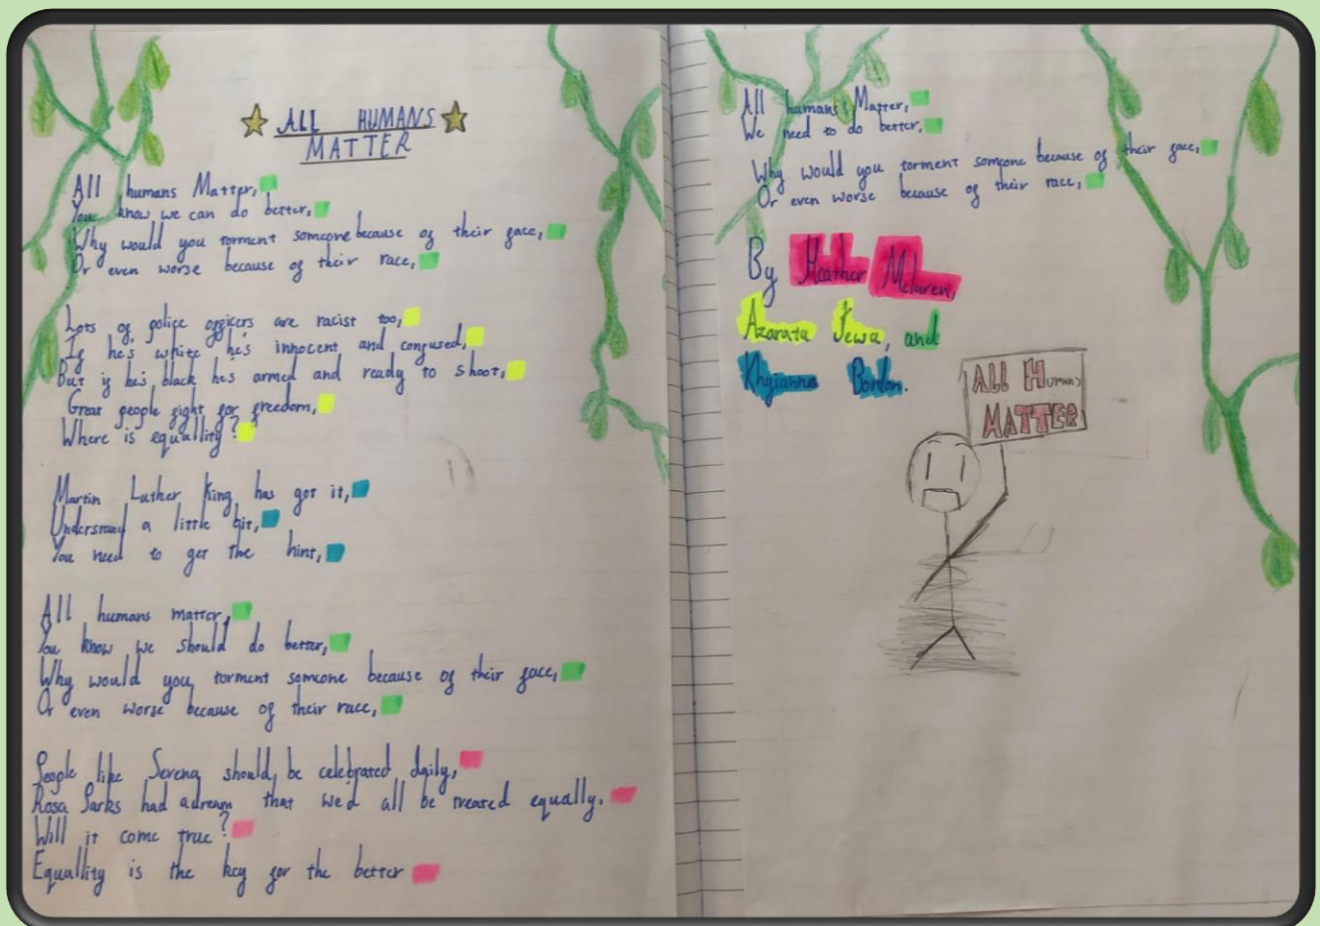 ALL HUMANS
MATTER
All humans Matter,
You know we can do better,
Why would you torment someone because of their face,
Or even worse because of their race,
Lots of police officers are racist too,
If he's white he's innocent and confused,
But if he's black he's armed and ready to shoot,
Great people fight for freedom,
Where is equallity?
Martin Luther King has got it,
Understand a little bit,
You need to get the hint,
All humans matter,
You know we should do better,
Why would you torment someone because of their face,
Or even worse because of their race,
People like Serena should be celebrated daily,
Rosa Parks had a dream that we'd all be treated equally.
Will it come true?
Equallity is the key for the better
All humans Matter,
We need to do better.
Why would you torment someone because of their face,
Or even worse because of their race,
By Heather Mclaren,
Azarata Jewa, and
Khyianna Bordon.
ALL HUMANS
MATTER